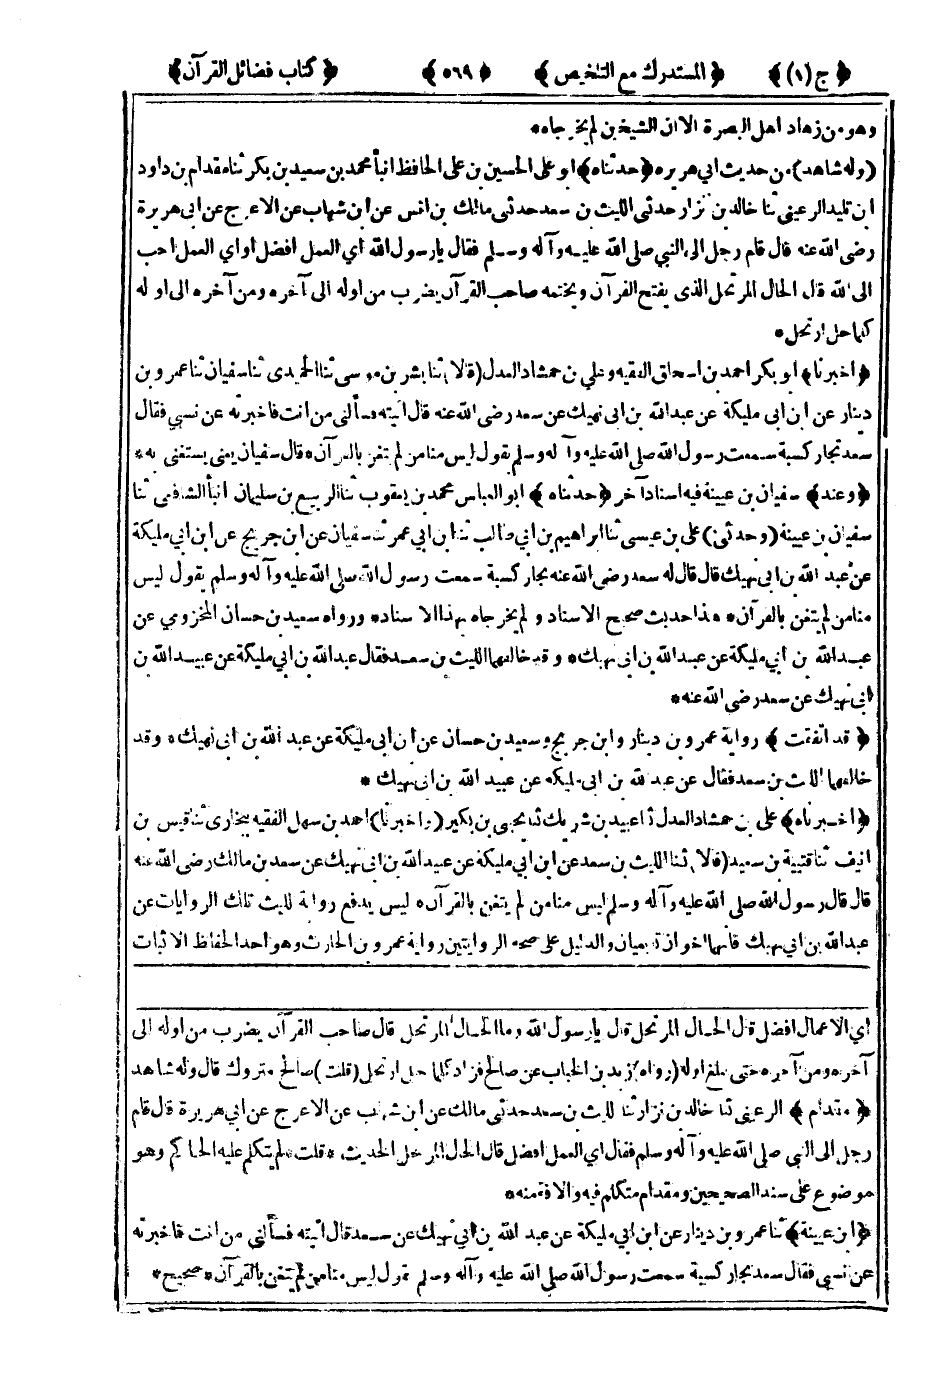 ﴿ ج (١) ﴾ ﴿ المستدرك مع التلخيص ﴾ ﴿ ٥٦٩ ﴾ ﴿ كتاب فضائل القرآن ﴾
وهو من زهاد اهل البصرة الا ان الشيخين لم يخرجاه *
(وله شاهد) من حديث ابي هريرة ﴿ حدثناه ﴾ ابو علي الحسين بن علي الحافظ انبأ محمد بن سعيد بن بكر ثنا مقدام بن داود
ان تليد الرعيني ثنا خالد بن نزار حدثني الليث بن سعد حدثني مالك بن انس عن ابن شهاب عن الاعرج عن ابي هريرة
رضى الله عنه قال قام رجل الى النبي صلى الله عليه وآله وسلم فقال يا رسول الله أي العمل افضل او اي العمل احب
الى الله قال الحال المرتحل الذى يفتح القرآن ويختمه صاحب القرآن يضرب من اوله الى آخره ومن آخره الى اوله
كلما حل ارتحل *
﴿ اخبرنا ﴾ ابو بكر احمد بن اسحاق الفقيه وعلي بن حمشاد العدل (قالا) ثنا بشر بن موسى ثنا الحميدى ثنا سفيان ثنا عمرو بن
دينار عن ابن ابى مليكة عن عبدالله بن ابى نهيك عن سعد رضى الله عنه قال أتيته فسألنى من انت فاخبرته عن نسبي فقال
سعد تجار كسبة سمعت رسول الله صلى الله عليه وآله وسلم يقول ليس منا من لم يتغن بالقرآن * قال سفيان يعنى يستغنى به *
﴿ وعند ﴾ سفيان بن عيينة فيه اسناد آخر ﴿ حدثناه ﴾ ابو العباس محمد بن يعقوب ثنا الربيع بن سليمان انبأ الشافعى ثنا
سفيان بن عيينة (وحدثنى) على بن عيسى ثنا ابراهيم بن ابي طالب ثنا ابن ابي عمر ثنا سفيان عن ابن جريج عن ابن ابي مليكة
عن عبد الله بن ابى نهيك قال قال له سعد رضى الله عنه تجار كسبة سمعت رسول الله صلى الله عليه وآله وسلم يقول ليس
منا من لم يتغن بالقرآن * هذا حديث صحيح الاسناد ولم يخرجاه بهذا الاسناد * ورواه سعيد بن حسان المخزومي عن
عبدالله بن ابي مليكة عن عبدالله بن ابى نهيك * وقد خالفهما الليث بن سعد فقال عبدالله بن ابي مليكة عن عبيدالله بن
ابى نهيك عن سعد رضى الله عنه *
﴿ قد اتفقت ﴾ رواية عمرو بن دينار وابن جريج وسعيد بن حسان عن ابن ابى مليكة عن عبد الله بن ابى نهيك * وقد
خالفهما الليث بن سعد فقال عن عبد الله بن ابى مليكة عن عبيد الله بن ابى نهيك *
﴿ اخبرناه ﴾ على بن حمشاد العدل ثنا عبيد بن شريك ثنا يحيى بن بكير (واخبرنا) احمد بن سهل الفقيه ببخارى ثنا قيس بن
انيف ثنا قتيبة بن سعيد (قالا) ثنا الليث بن سعد عن ابن ابي مليكة عن عبيد الله بن ابى نهيك عن سعد بن مالك رضى الله عنه
قال قال رسول الله صلى الله عليه وآله وسلم ليس منا من لم يتغن بالقرآن * ليس يدفع رواية الليث تلك الروايات عن
عبدالله بن ابي نهيك فانهما اخوان تابعيان والدليل على صحة الروايتين رواية عمرو بن الحارث وهو احد الحفاظ الاثبات
أي الاعمال افضل قال الحال المرتحل قال يا رسول الله وما الحال المرتحل قال صاحب القرآن يضرب من اوله الى
آخره ومن آخره حتى يبلغ اوله (رواه) زيد بن الحباب عن صالح فزاد كلما حل ارتحل (قلت) صالح متروك قال وله شاهد
﴿ مقدام ﴾ الرعيني ثنا خالد بن نزار ثنا الليث بن سعد حدثني مالك عن ابن شهاب عن الاعرج عن ابي هريرة قال قام
رجل الى النبي صلى الله عليه وآله وسلم فقال اي العمل افضل قال الحال المرتحل الحديث * قلت * لم يتكلم عليه الحاكم وهو
موضوع على سند الصحيحين ومقدام متكلم فيه والآفة منه *
﴿ ابن عيينة ﴾ ثنا عمرو بن دينار عن ابن ابي مليكة عن عبد الله بن ابي نهيك عن سعد قال أتيته فسألنى من انت فاخبرته
عن نسبي فقال سعد تجار كسبة سمعت رسول الله صلى الله عليه وآله وسلم يقول ليس منا من لم يتغن بالقرآن * صحيح *